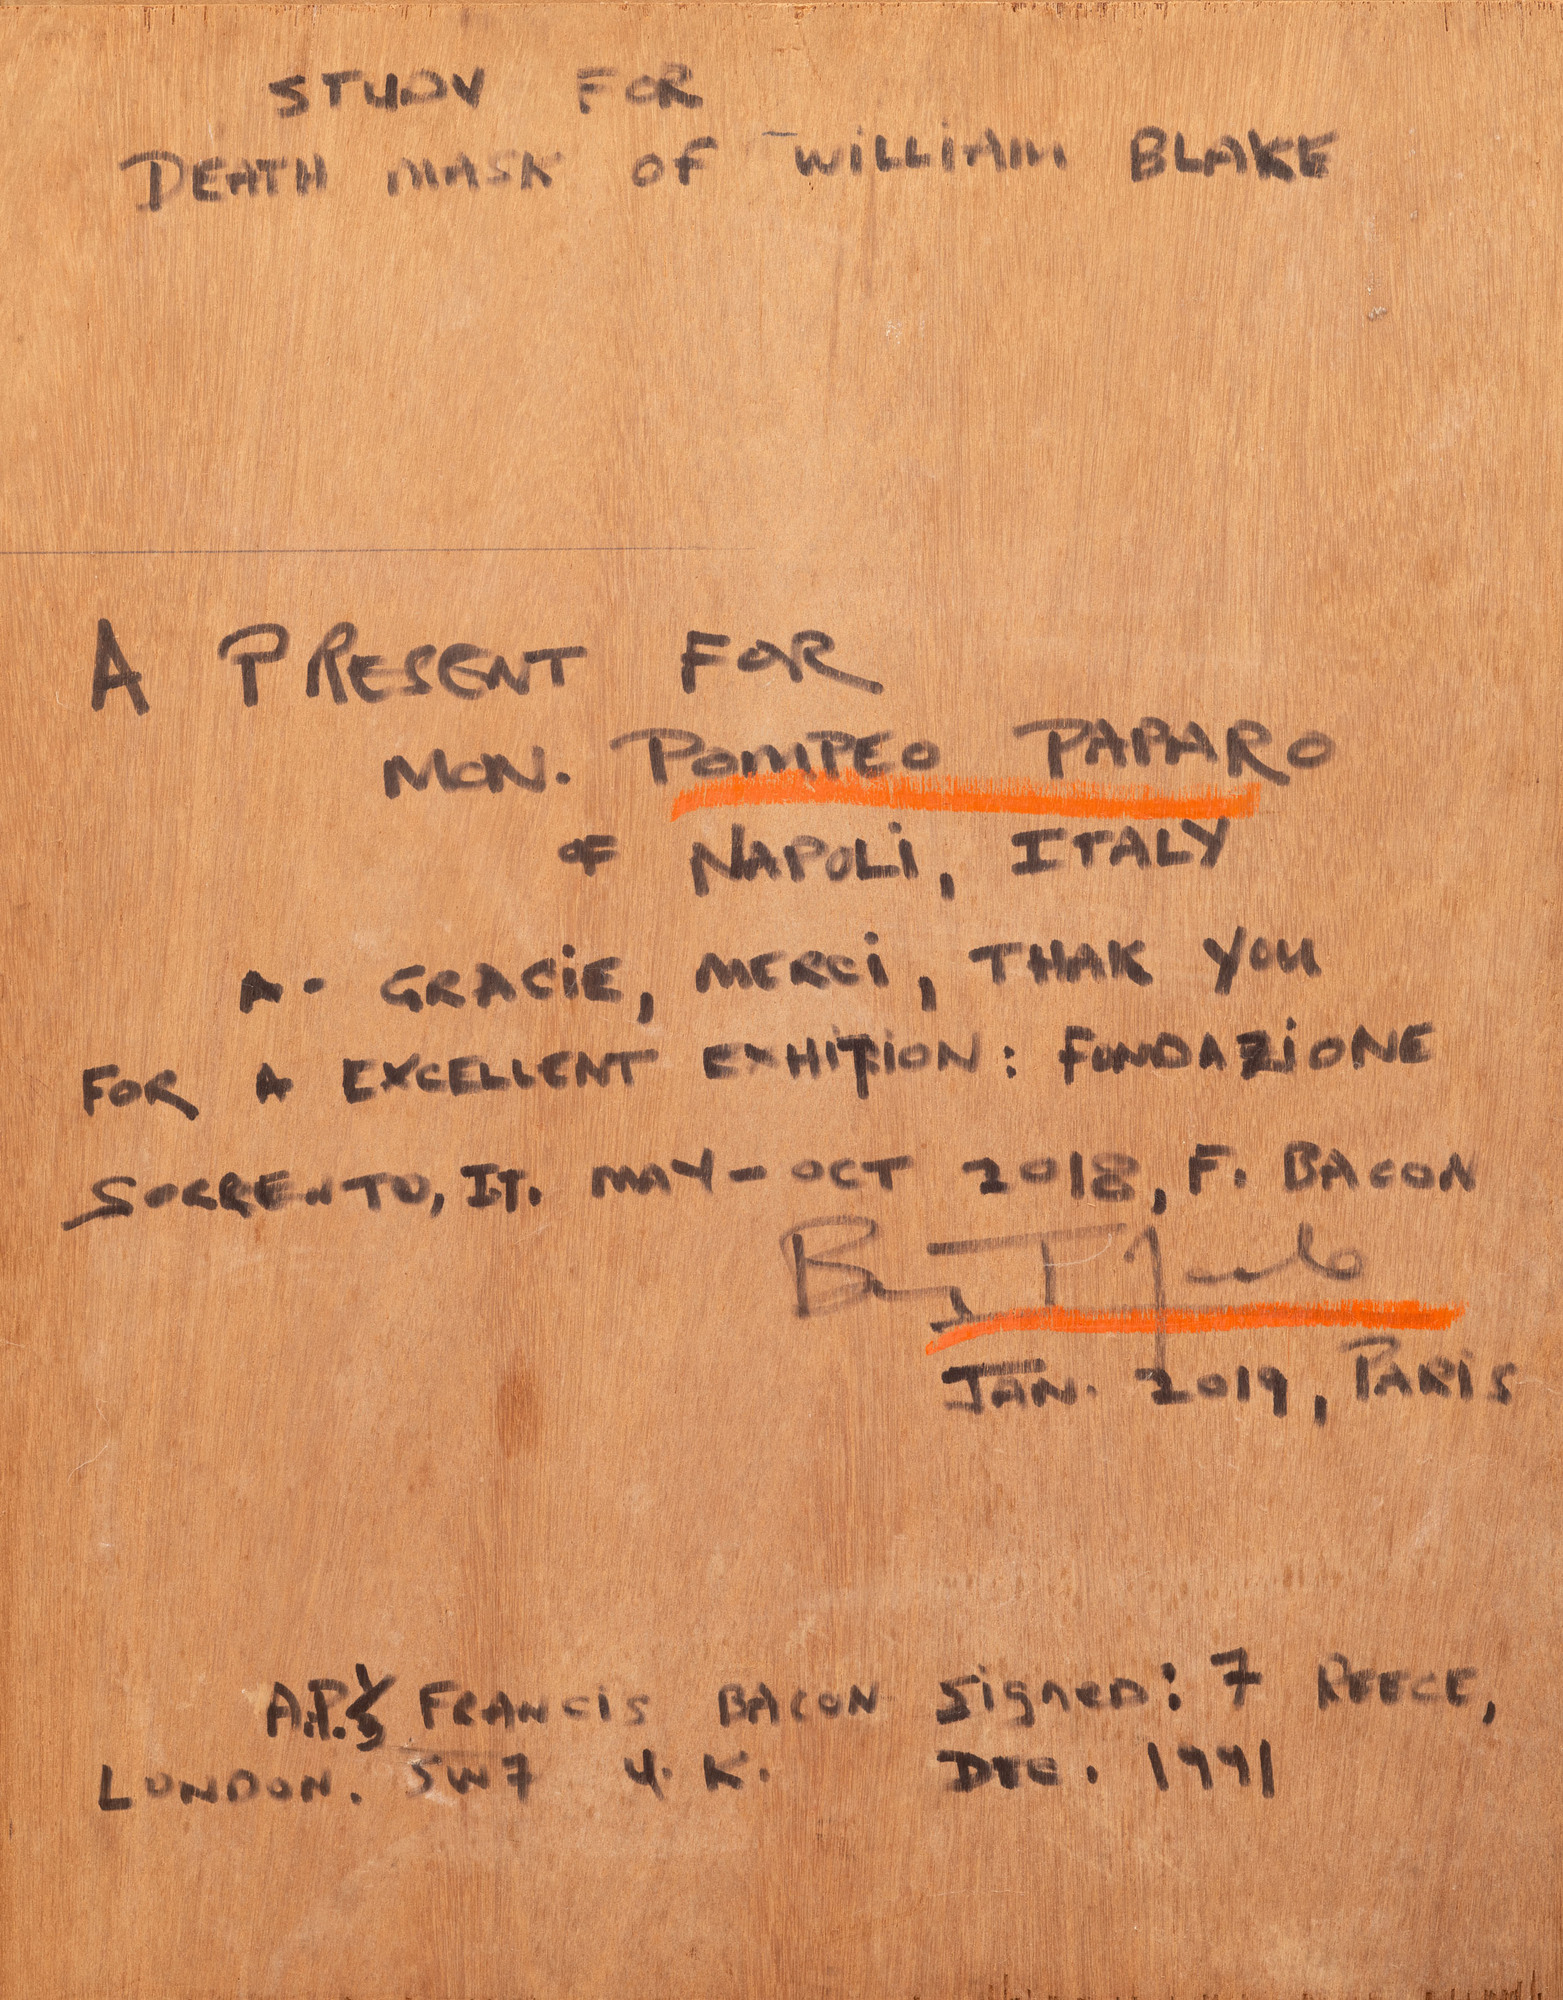 STUDY FOR
DEATH MASK OF WILLIAM BLAKE
A PRESENT FOR
MON. POMPEO PAPARO
OF NAPOLI, ITALY
A - GRACIE, MERCI, THAK YOU
FOR A EXCELLENT EXHITION: FUNDAZIONE
SORRENTO, IT. MAY - OCT 2018, F. BACON
JAN. 2019, PARIS
A.P. FRANCIS BACON SIGNED: 7 REECE,
LONDON. SW7 U.K. DEC. 1991